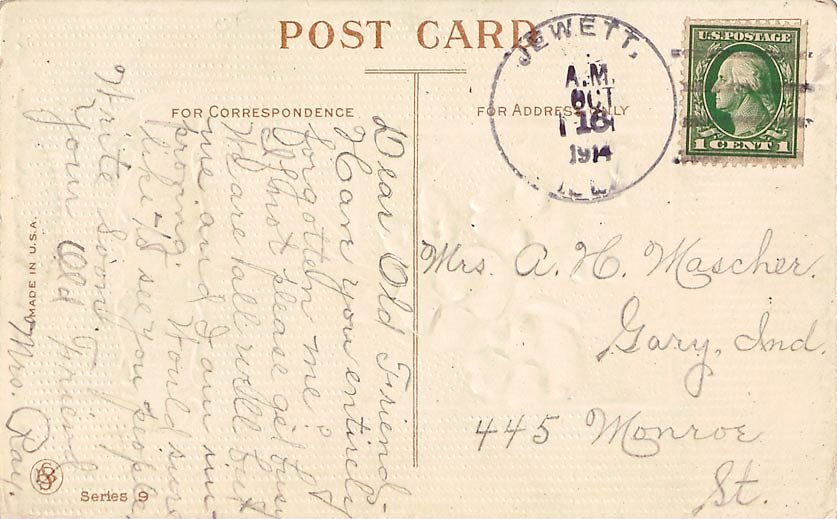 POST CARD
JEWETT,
A.M.
OCT
16
1914
ILL.
U.S. POSTAGE
1 CENT 1
FOR CORRESPONDENCE
FOR ADDRESS ONLY
Dear Old Friend.
Have you entirely
forgotten me?
If not please get busy
We are all well but
me and I am im-
proving. Would sure
like to see you people
Write soon.
Your Old Friend
Mrs. Ray.
Mrs. A. H. Mascher.
Gary, Ind.
445 Monroe
St.
MADE IN U.S.A.
Series 9